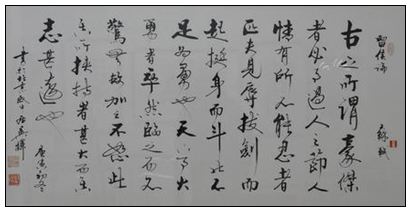 留侯論
蘇軾
古之所謂豪傑
者必有過人之節人
情有所不能忍者
匹夫見辱拔劍而
起挺身而鬥此不
足為勇也天下有大
勇者卒然臨之而不
驚無故加之不怒此
其所挾持者甚大而其
志甚遠也
庚寅初冬